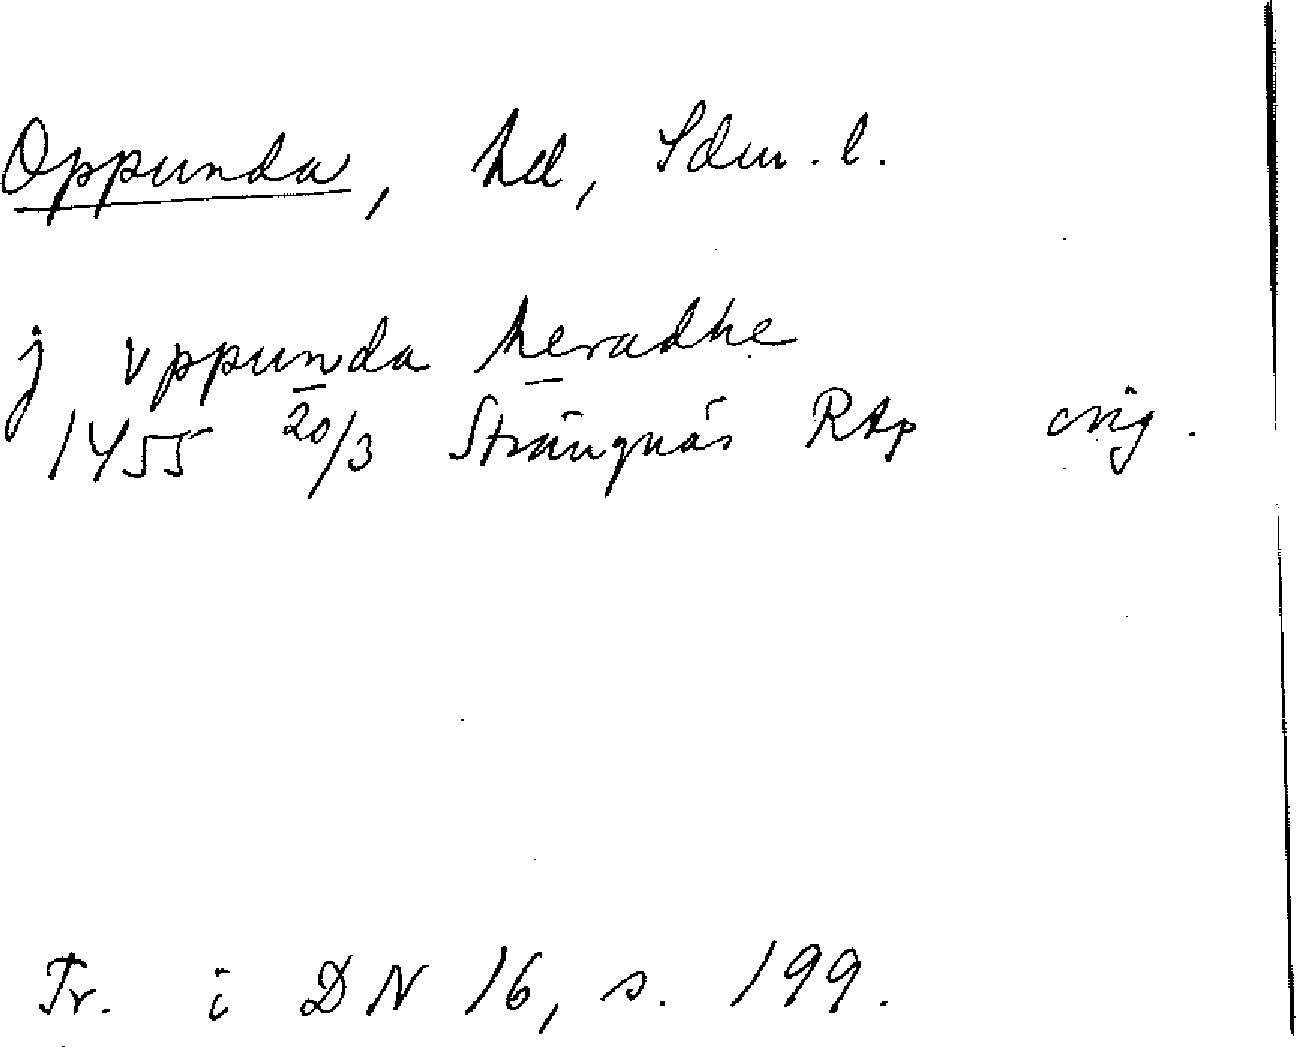 Oppunda, hd, Sdm. l.
j vppunda heradhe
1455 20/3 Strängnäs RAp orig.
Tr. i DN 16, s. 199.